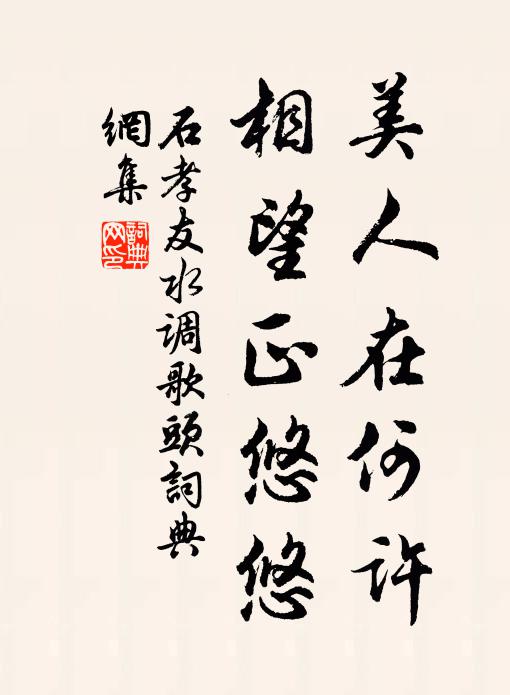 美人在何许
相望正悠悠
石孝友水调歌头詞典
網集
詞典
网印